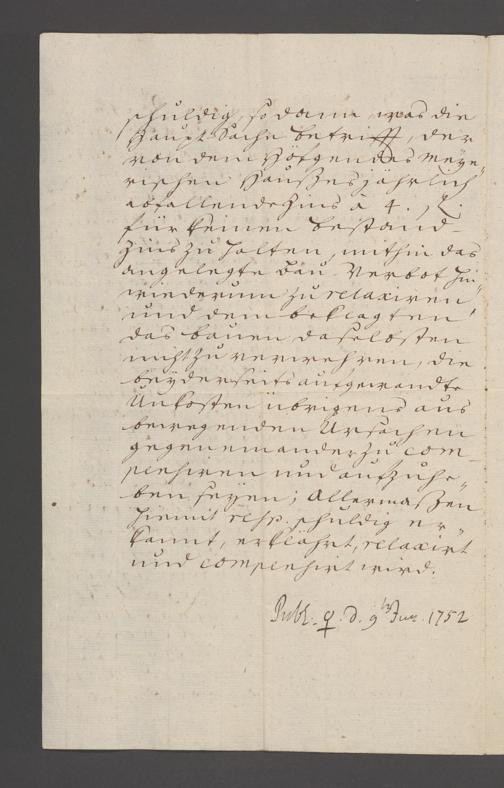 schuldig, so dann was die
Haupt Sache betrifft, der
von dem Höfgen des Meye-
rischen Haußes jährlich
abfallende Zins à 4.
für keinen bestand
Zins zu halten, mithin das
angelegte Bau Verbot hin-
wiederum zu relaxiren
und dem beklagten
das bauen daselbsten
nicht zu verwehren, die
beyderseits aufgewandte
Unkosten übrigens aus
bewegenden Ursachen
gegen einander zu com-
pensiren und aufzuhe-
ben seyen; Allermaßen
hiemit resp. schuldig er-
kannt, erklährt, relaxirt
und compensirt wird.
Publ. ♀. d. 9 Jun. 1752